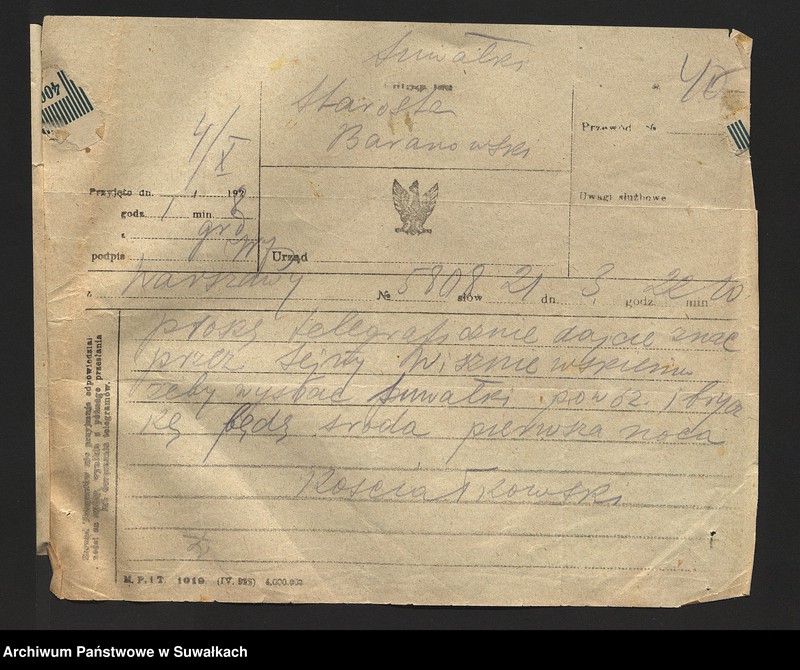 400
Suwałki
4/X
Starosta
Baranowski
Przewód №
4/X
Przyjęto dn. / 192
godz. min. 8
z
podpis
Urząd
Uwagi służbowe
z Warszawy № 5808 słów 21 dn. 3 godz. 22 min. 10
proszę telegraficznie dajcie znać
przez Sejny Wiszniewskiemu
żeby wysłać Suwałki powóz i brycz
kę będę środa pierwsza nocą
Kościałkowski
Zarząd Telegrafów nie przyjmuje odpowiedzial
ności za szkody, wynikłe z późnego przesłania
lub doręczenia telegramów.
M. P. i T. 1019 (IV. 925) 4.000.000
Archiwum Państwowe w Suwałkach